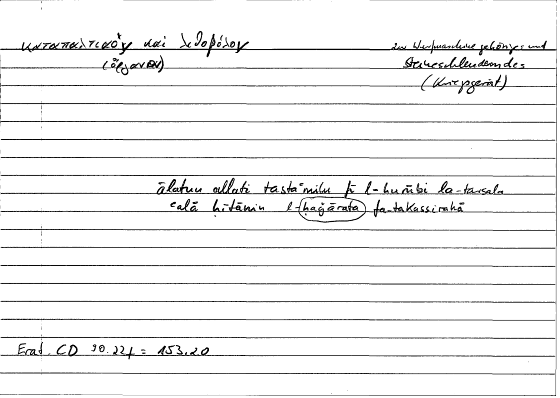 καταπαλτικοῦ καὶ λιθοβόλου
(ὄργανον)
zur Wurfmaschine gehöriges und
Steineschleuderndes
(Kriegsgerät)
ālatun allatī tastaʿmilu fī l-ḥurūbi la-tursala
ʿalā ḥīṭāni l-ḥaǧārata fa-takassirahā
Erat. CD 90.22f = 153.20